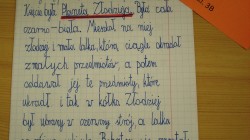 Kiedyś była Planeta Złodzieja. Była cała
czarno-biała. Mieszkał na niej
złodziej i mała lalka, która ciągle okradał
zmarłych przedmiotów, a potem
oddawał jej te przedmioty, które
ukradł i tak w kółko. Złodziej
był ubrany w czerwony strój, a lalka
38